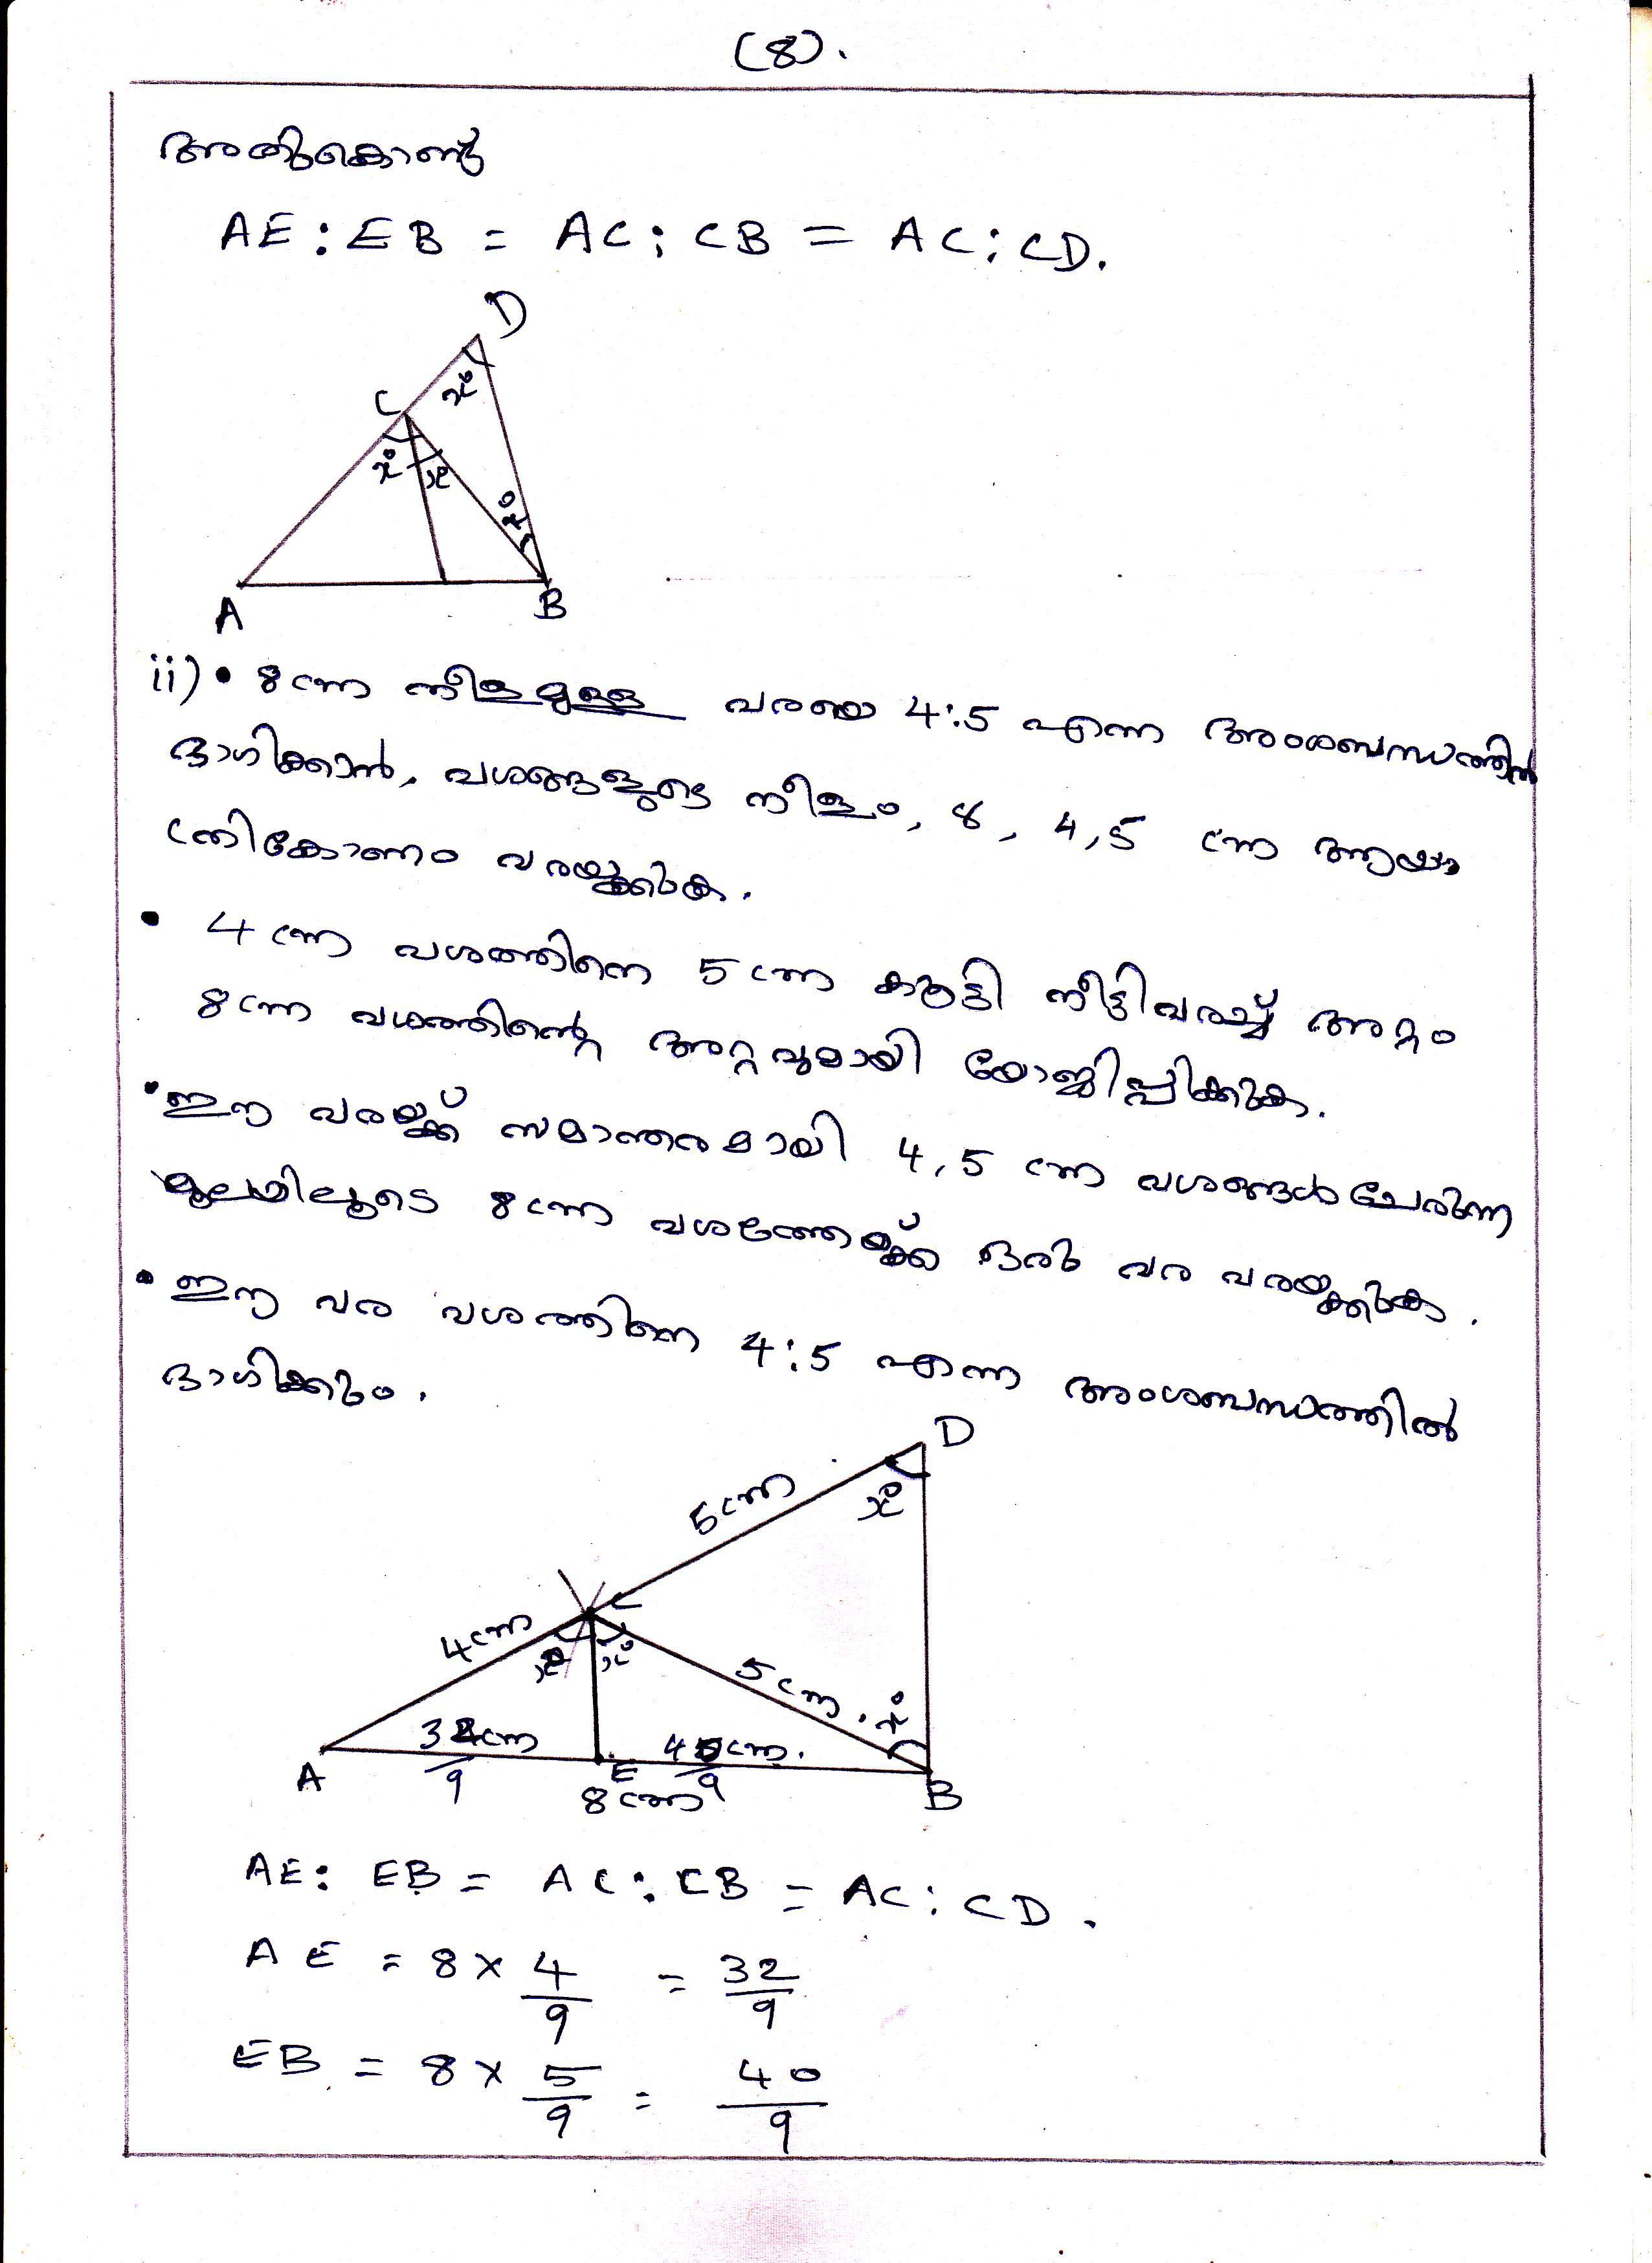 (8).
അതുകൊണ്ട്
AE : EB = AC : CB = AC : CD.
D
C
x°
x°
x°
x°
A
B
ii) • 8 cm നീളമുള്ള വരയെ 4:5 എന്ന അംശബന്ധത്തിൽ
ഭാഗിക്കാൻ, വശങ്ങളുടെ നീളം, 8, 4, 5 cm ആയ
ത്രികോണം വരയ്ക്കുക.
• 4 cm വശത്തിനെ 5 cm കൂട്ടി നീട്ടിവരച്ച് അറ്റം
8 cm വശത്തിന്റെ അറ്റവുമായി യോജിപ്പിക്കുക.
• ഈ വരയ്ക്ക് സമാന്തരമായി 4, 5 cm വശങ്ങൾ ചേരുന്ന
മൂലയിലൂടെ 8 cm വശത്തേയ്ക്ക് ഒരു വര വരയ്ക്കുക.
• ഈ വര വശത്തിനെ 4:5 എന്ന അംശബന്ധത്തിൽ
ഭാഗിക്കും.
D
5 cm
x°
C
4 cm
x° x°
5 cm.
x°
32/9 cm
40/9 cm.
A
E
B
8 cm
AE : EB = AC : CB = AC : CD.
AE = 8 × 4/9 = 32/9
EB = 8 × 5/9 = 40/9